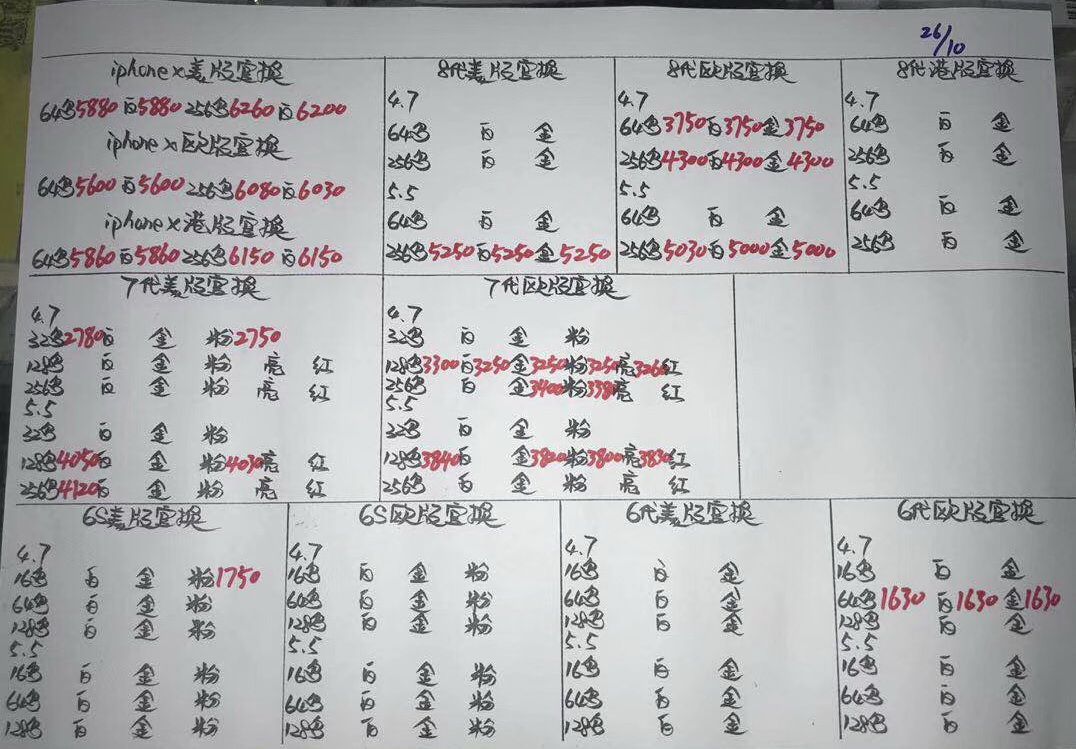 26/10
iphone x美版官换
64黑5880白5880 256黑6260白6200
iphone x欧版官换
64黑5600白5600 256黑6080白6030
iphone x港版官换
64黑5860白5860 256黑6150白6150
8代美版官换
4.7
64黑 白 金
256黑 白 金
5.5
64黑 白 金
256黑5250白5250金5250
8代欧版官换
4.7
64黑3750白3750金3750
256黑4300白4300金4300
5.5
64黑 白 金
256黑5030白5000金5000
8代港版官换
4.7
64黑 白 金
256黑 白 金
5.5
64黑 白 金
256黑 白 金
7代美版官换
4.7
32黑2780白 金 粉2750
128黑 白 金 粉 亮 红
256黑 白 金 粉 亮 红
5.5
32黑 白 金 粉
128黑4050白 金 粉4030亮 红
256黑4120白 金 粉 亮 红
7代欧版官换
4.7
32黑 白 金 粉
128黑3300白3250金3250粉3250亮3260红
256黑 白 金3400粉3380亮 红
5.5
32黑 白 金 粉
128黑3840白 金3820粉3800亮3830红
256黑 白 金 粉 亮 红
6S美版官换
4.7
16黑 白 金 粉1750
64黑 白 金 粉
128黑 白 金 粉
5.5
16黑 白 金 粉
64黑 白 金 粉
128黑 白 金 粉
6S欧版官换
4.7
16黑 白 金 粉
64黑 白 金 粉
128黑 白 金 粉
5.5
16黑 白 金 粉
64黑 白 金 粉
128黑 白 金 粉
6代美版官换
4.7
16黑 白 金
64黑 白 金
128黑 白 金
5.5
16黑 白 金
64黑 白 金
128黑 白 金
6代欧版官换
4.7
16黑 白 金
64黑1630 白1630金1630
128黑 白 金
5.5
16黑 白 金
64黑 白 金
128黑 白 金